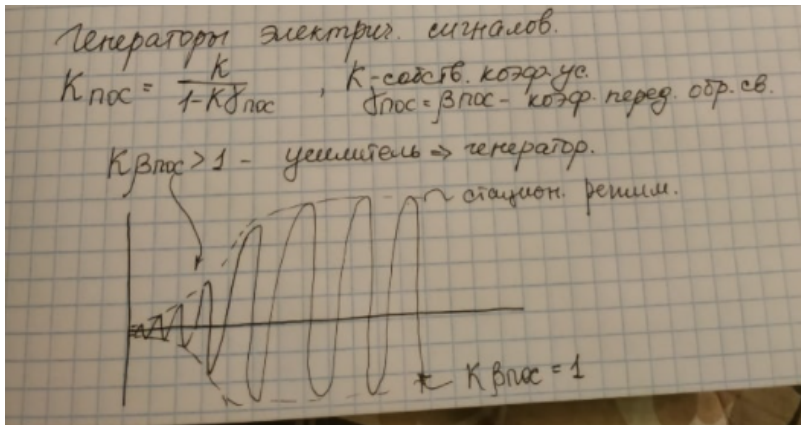 Генераторы электрич. сигналов.
Kпос = K / 1-Kγпос , K-собств. коэф. ус.
γпос = βпос - коэф. перед. обр. св.
Kβпос > 1 - усилитель => генератор.
стацион. режим.
Kβпос = 1